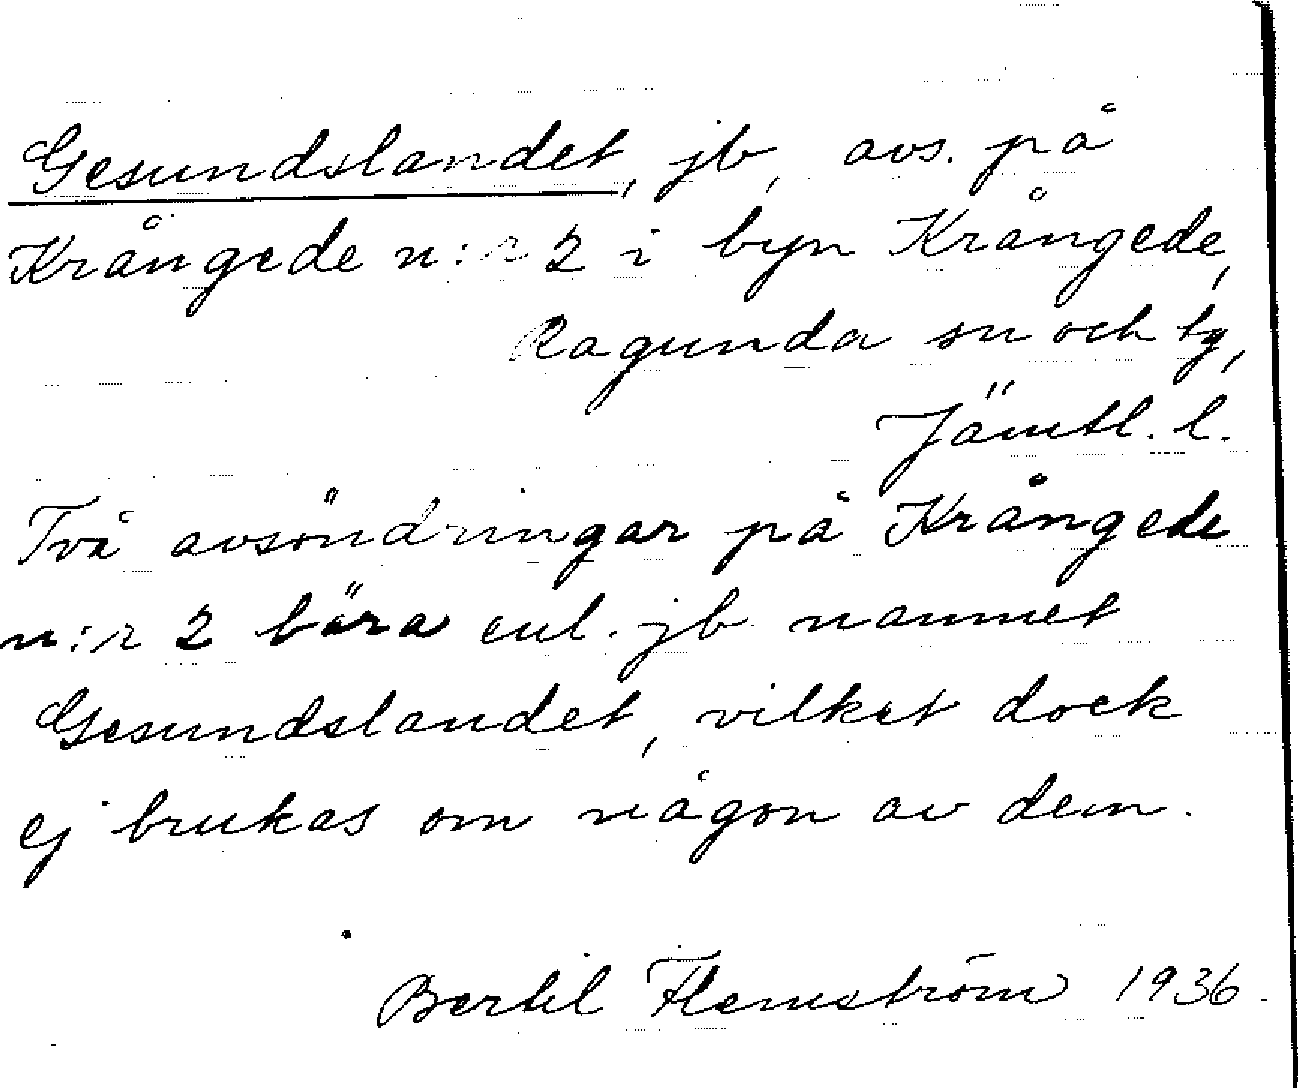 Gesundslandet, jb, avs. på
Krångede n:r 2 i byn Krångede,
Ragunda sn och tg,
Jämtl. l.
Två avsöndringar på Krångede
n:r 2 bära enl. jb. namnet
Gesundslandet, vilket dock
ej brukas om någon av dem.
Bertil Flemström 1936.